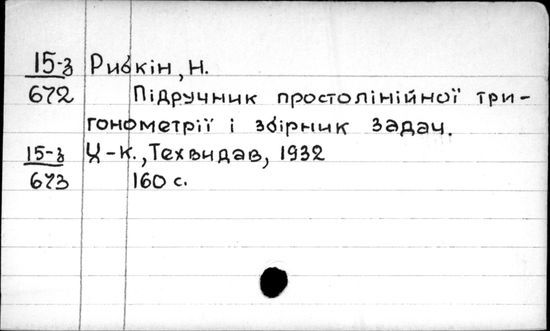 15-з Рибкін, Н.
672 Підручник простолінійної три-
гонометрії і збірник задач.
15-з Х-К., Техвидав, 1932
673 160 с.